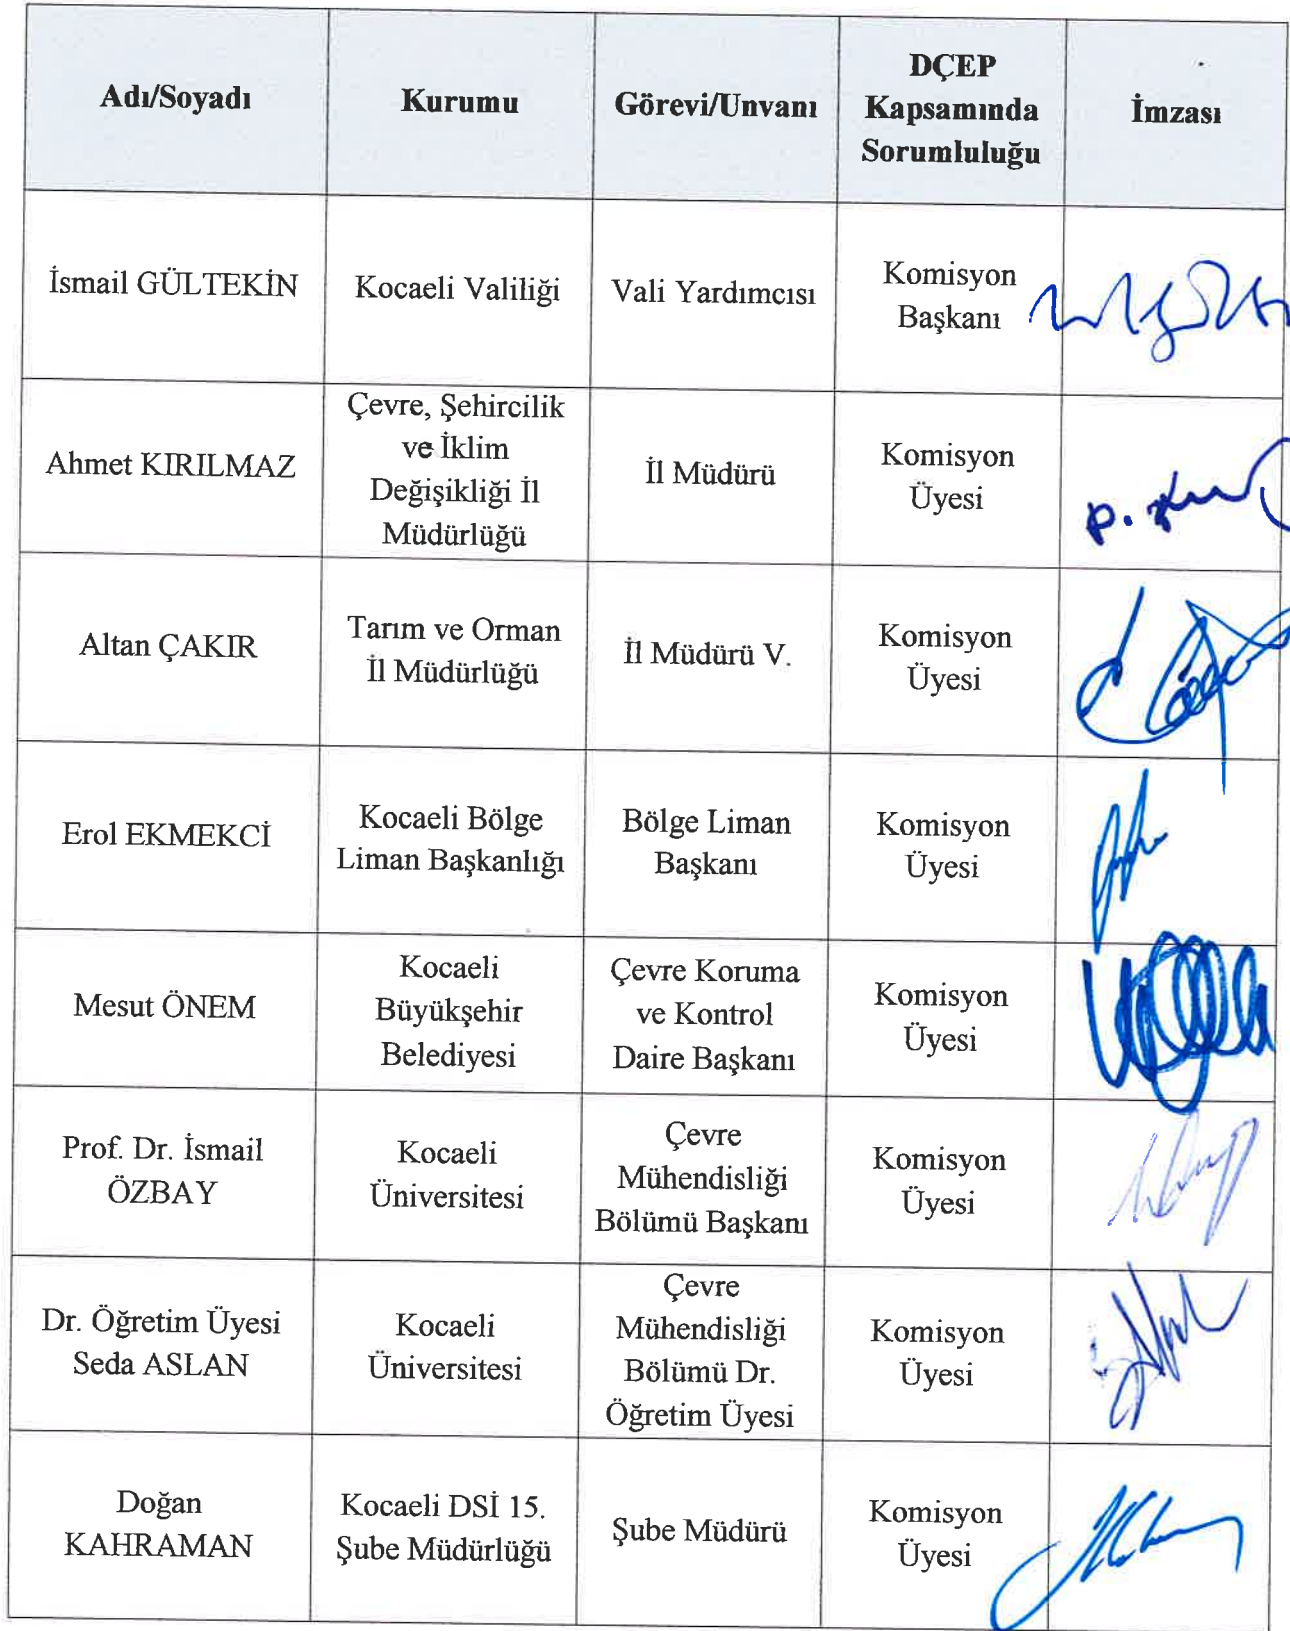 Adı/Soyadı
Kurumu
Görevi/Unvanı
DÇEP
Kapsamında
Sorumluluğu
İmzası
İsmail GÜLTEKİN
Kocaeli Valiliği
Vali Yardımcısı
Komisyon
Başkanı
Ahmet KIRILMAZ
Çevre, Şehircilik
ve İklim
Değişikliği İl
Müdürlüğü
İl Müdürü
Komisyon
Üyesi
Altan ÇAKIR
Tarım ve Orman
İl Müdürlüğü
İl Müdürü V.
Komisyon
Üyesi
Erol EKMEKCİ
Kocaeli Bölge
Liman Başkanlığı
Bölge Liman
Başkanı
Komisyon
Üyesi
Mesut ÖNEM
Kocaeli
Büyükşehir
Belediyesi
Çevre Koruma
ve Kontrol
Daire Başkanı
Komisyon
Üyesi
Prof. Dr. İsmail
ÖZBAY
Kocaeli
Üniversitesi
Çevre
Mühendisliği
Bölümü Başkanı
Komisyon
Üyesi
Dr. Öğretim Üyesi
Seda ASLAN
Kocaeli
Üniversitesi
Çevre
Mühendisliği
Bölümü Dr.
Öğretim Üyesi
Komisyon
Üyesi
Doğan
KAHRAMAN
Kocaeli DSİ 15.
Şube Müdürlüğü
Şube Müdürü
Komisyon
Üyesi